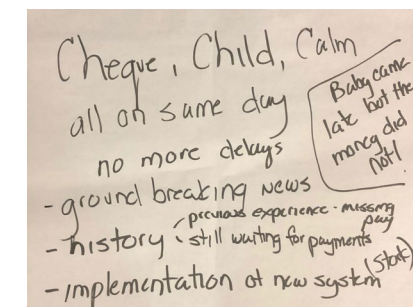 Cheque, Child, Calm
all on same day
no more delays
Baby came
late but the
money did
not!
- ground breaking news
- history
previous experience - missing
pay
still waiting for payments
- implementation of new system
(Stork)